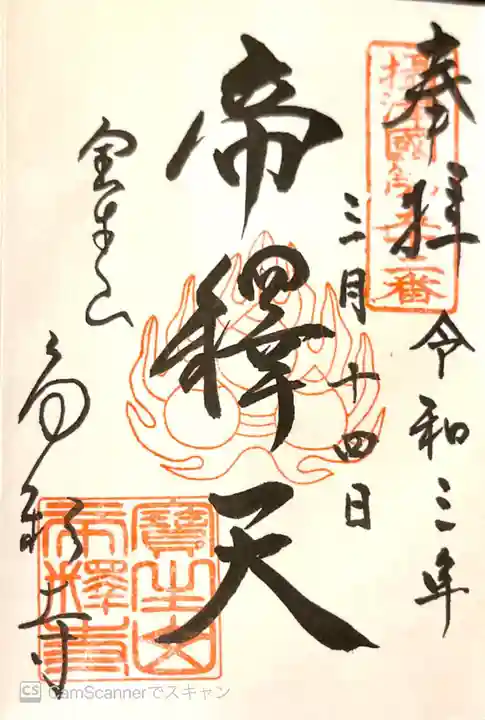 奉拝
令和三年
三月十四日
帝釋天
帝釋寺
摂津國第五十二番
寶生山
帝釋寺
CS CamScannerでスキャン